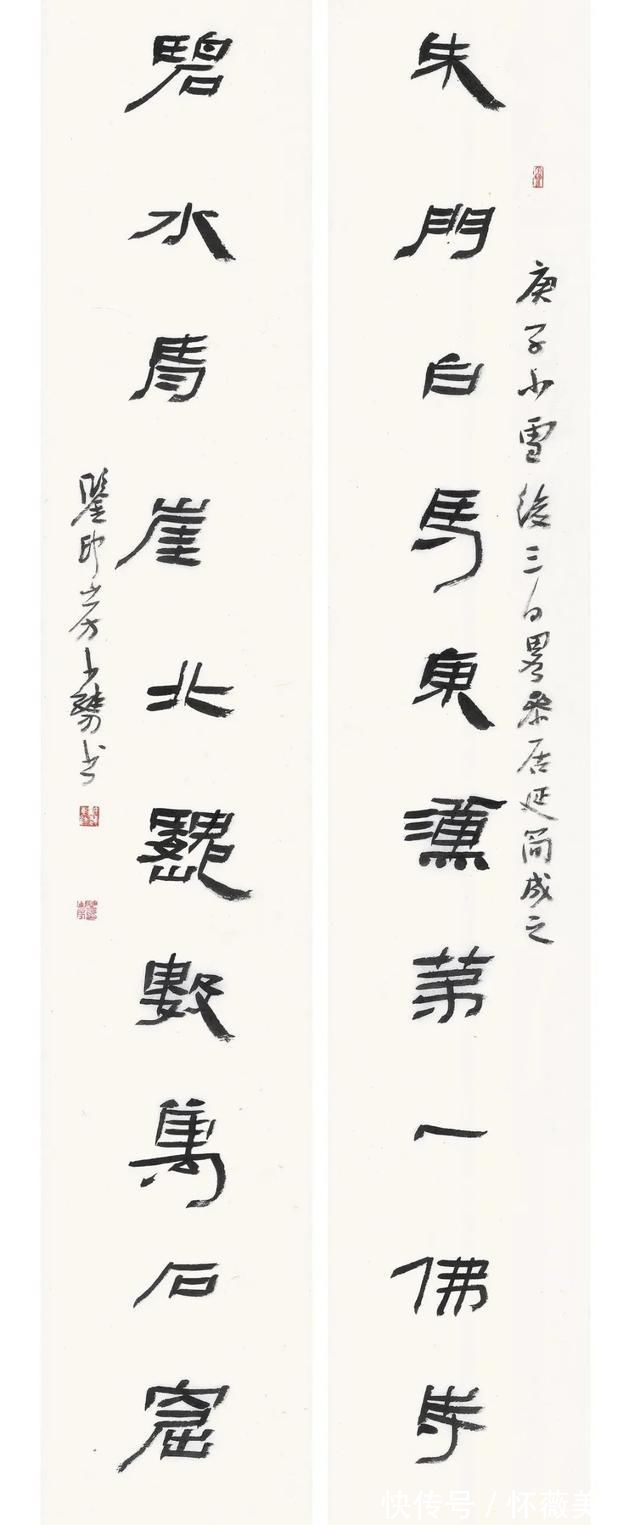 朱門白馬東漢第一佛寺
庚子小雪後三日畧參居延簡成之
碧水青崖北巍數萬石窟
鑒印山房书
快传号 / 怀薇美